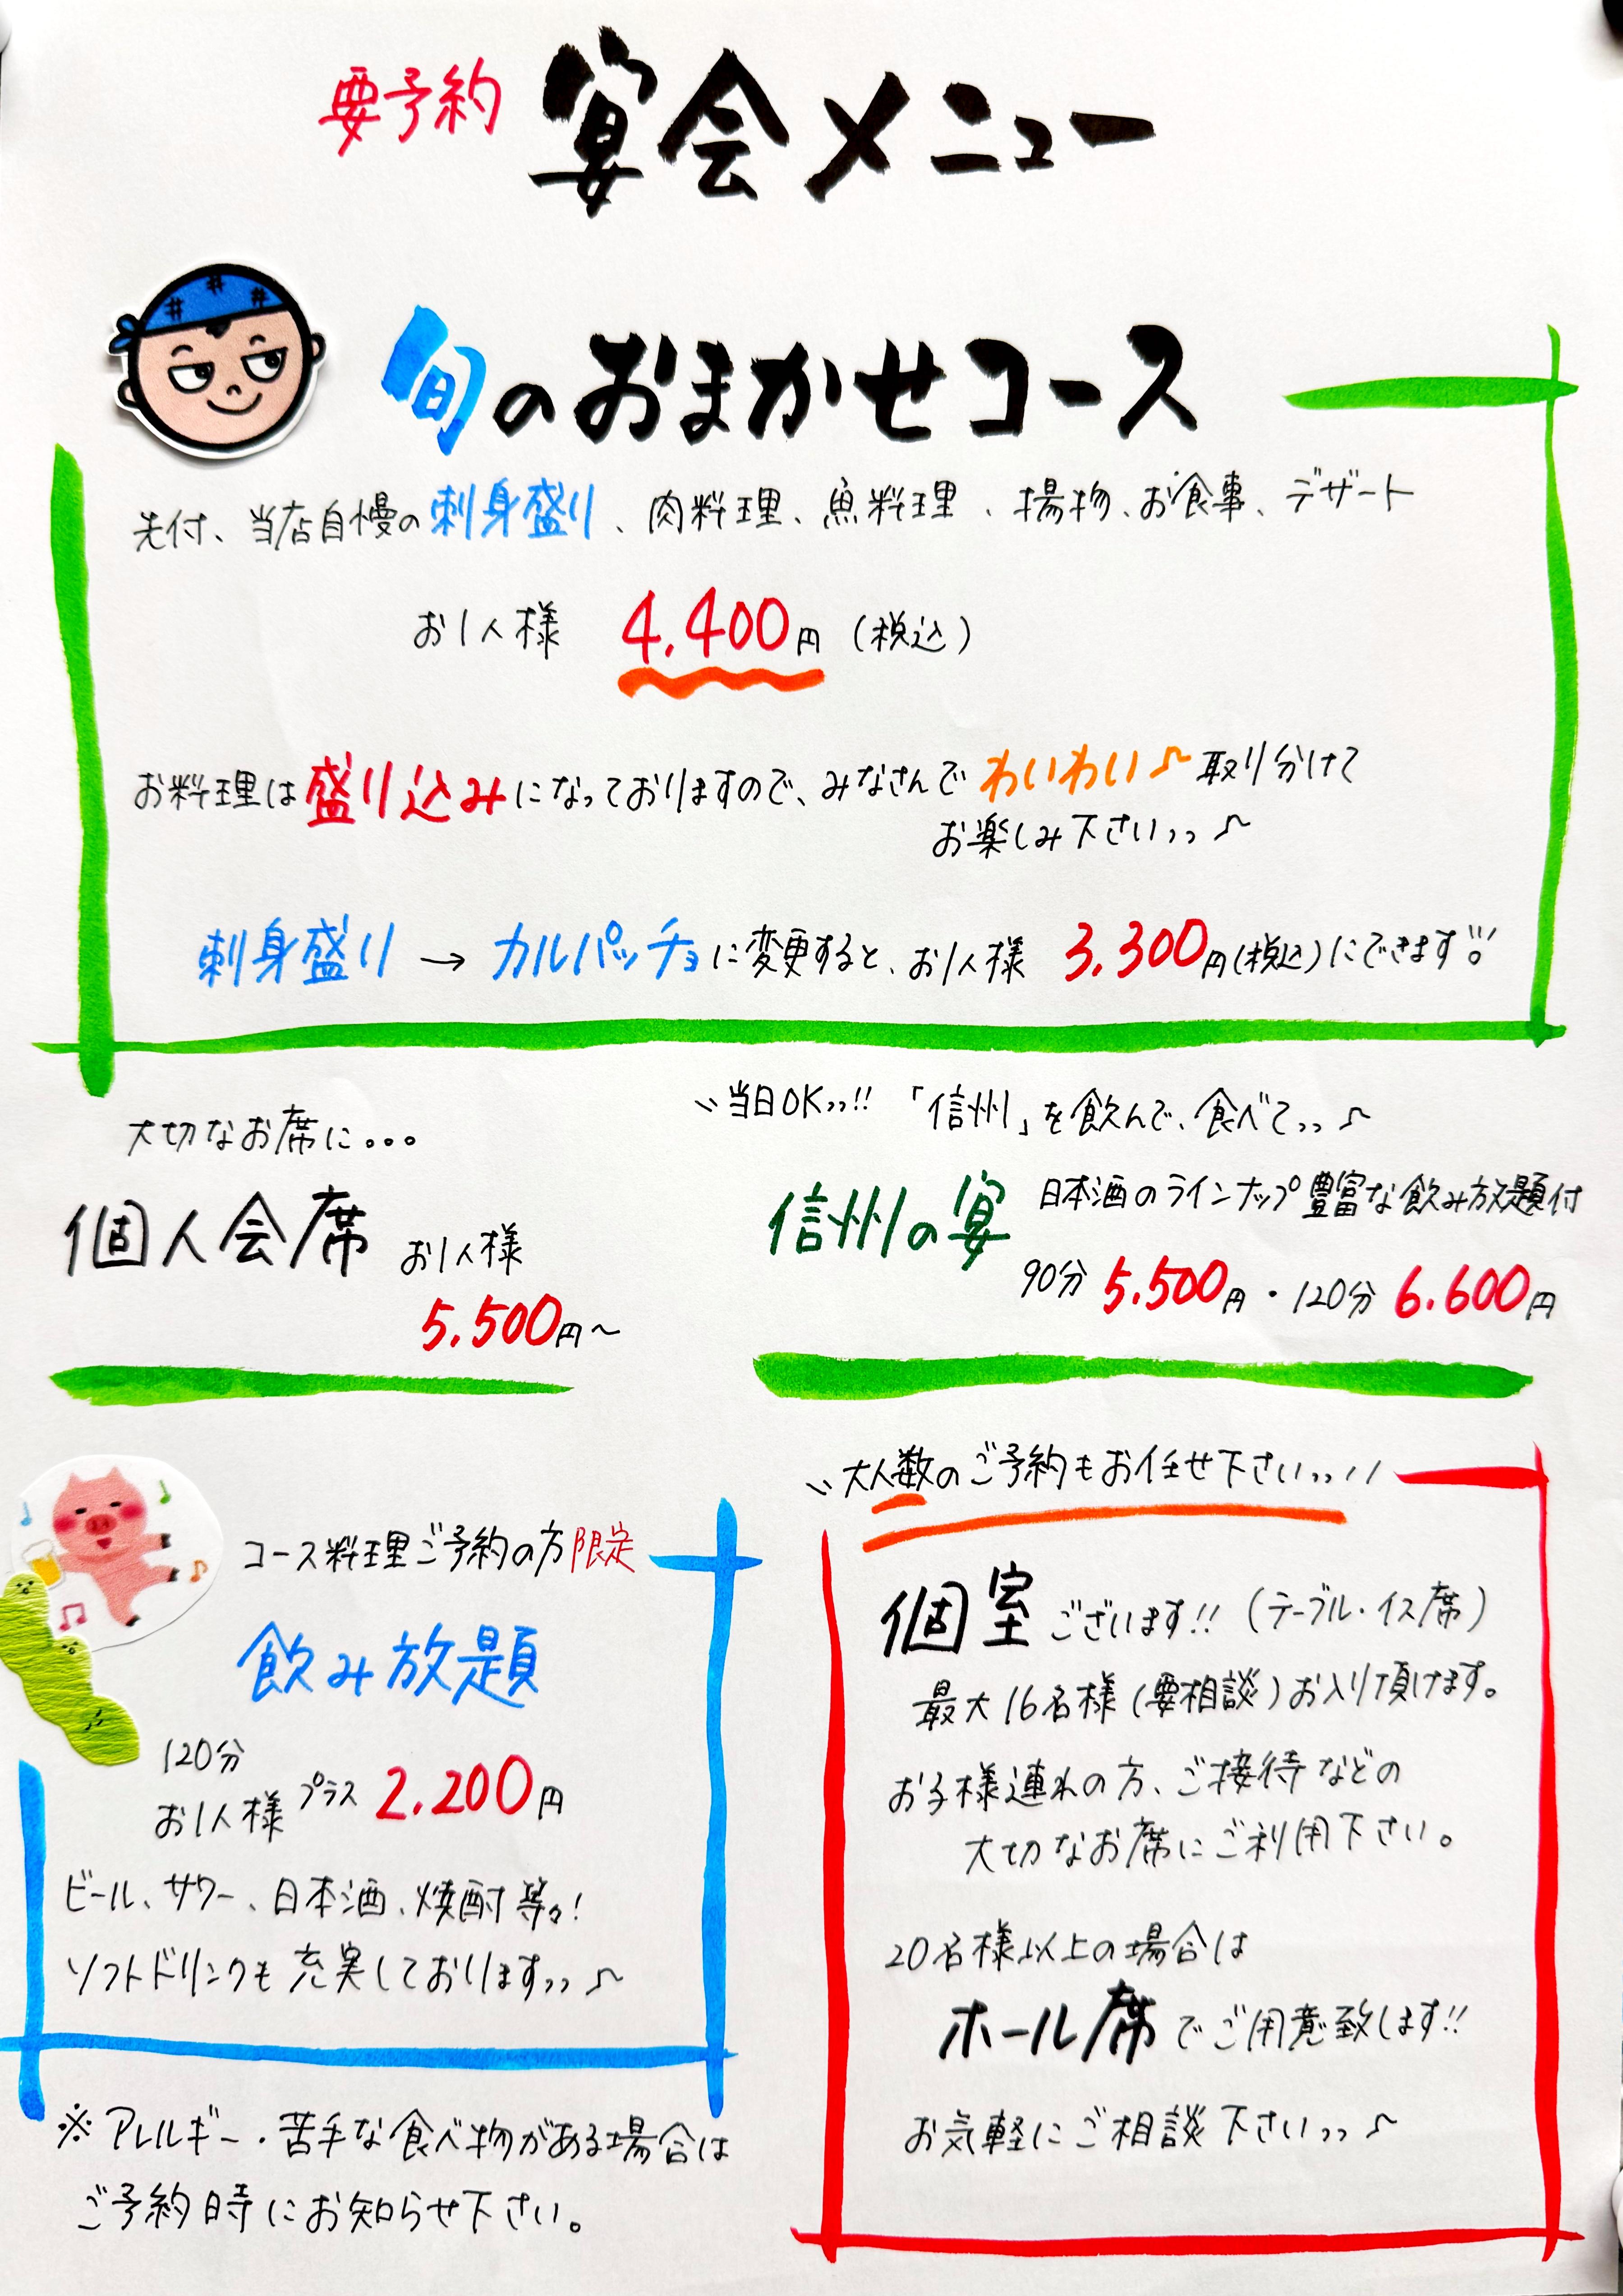 要予約 宴会メニュー
旬のおまかせコース
先付、当店自慢の刺身盛り、肉料理、魚料理、揚物、お食事、デザート
お1人様 4.400円(税込)
お料理は盛り込みになっておりますので、みなさんでわいわい♪取り分けて
お楽しみ下さいッッ♪
刺身盛り→カルパッチョに変更すると、お1人様 3.300円(税込)にできます!!。
大切なお席に...
個人会席 お1人様
5.500円~
当日OKッッ!!「信州」を飲んで、食べてッッ♪
信州の宴 日本酒のラインナップ豊富な飲み放題付
90分 5.500円・120分 6.600円
コース料理ご予約の方限定
飲み放題
120分
お1人様 プラス 2.200円
ビール、サワー、日本酒、焼酎等々!
ソフトドリンクも充実しておりますッッ♪
※アレルギー・苦手な食べ物がある場合は
ご予約時にお知らせ下さい。
大人数のご予約もお任せ下さいッッ
個室ございます!!(テーブル・イス席)
最大16名様(要相談)お入り頂けます。
お子様連れの方、ご接待などの
大切なお席にご利用下さい。
20名様以上の場合は
ホール席でご用意致します!!
お気軽にご相談下さいッッ♪